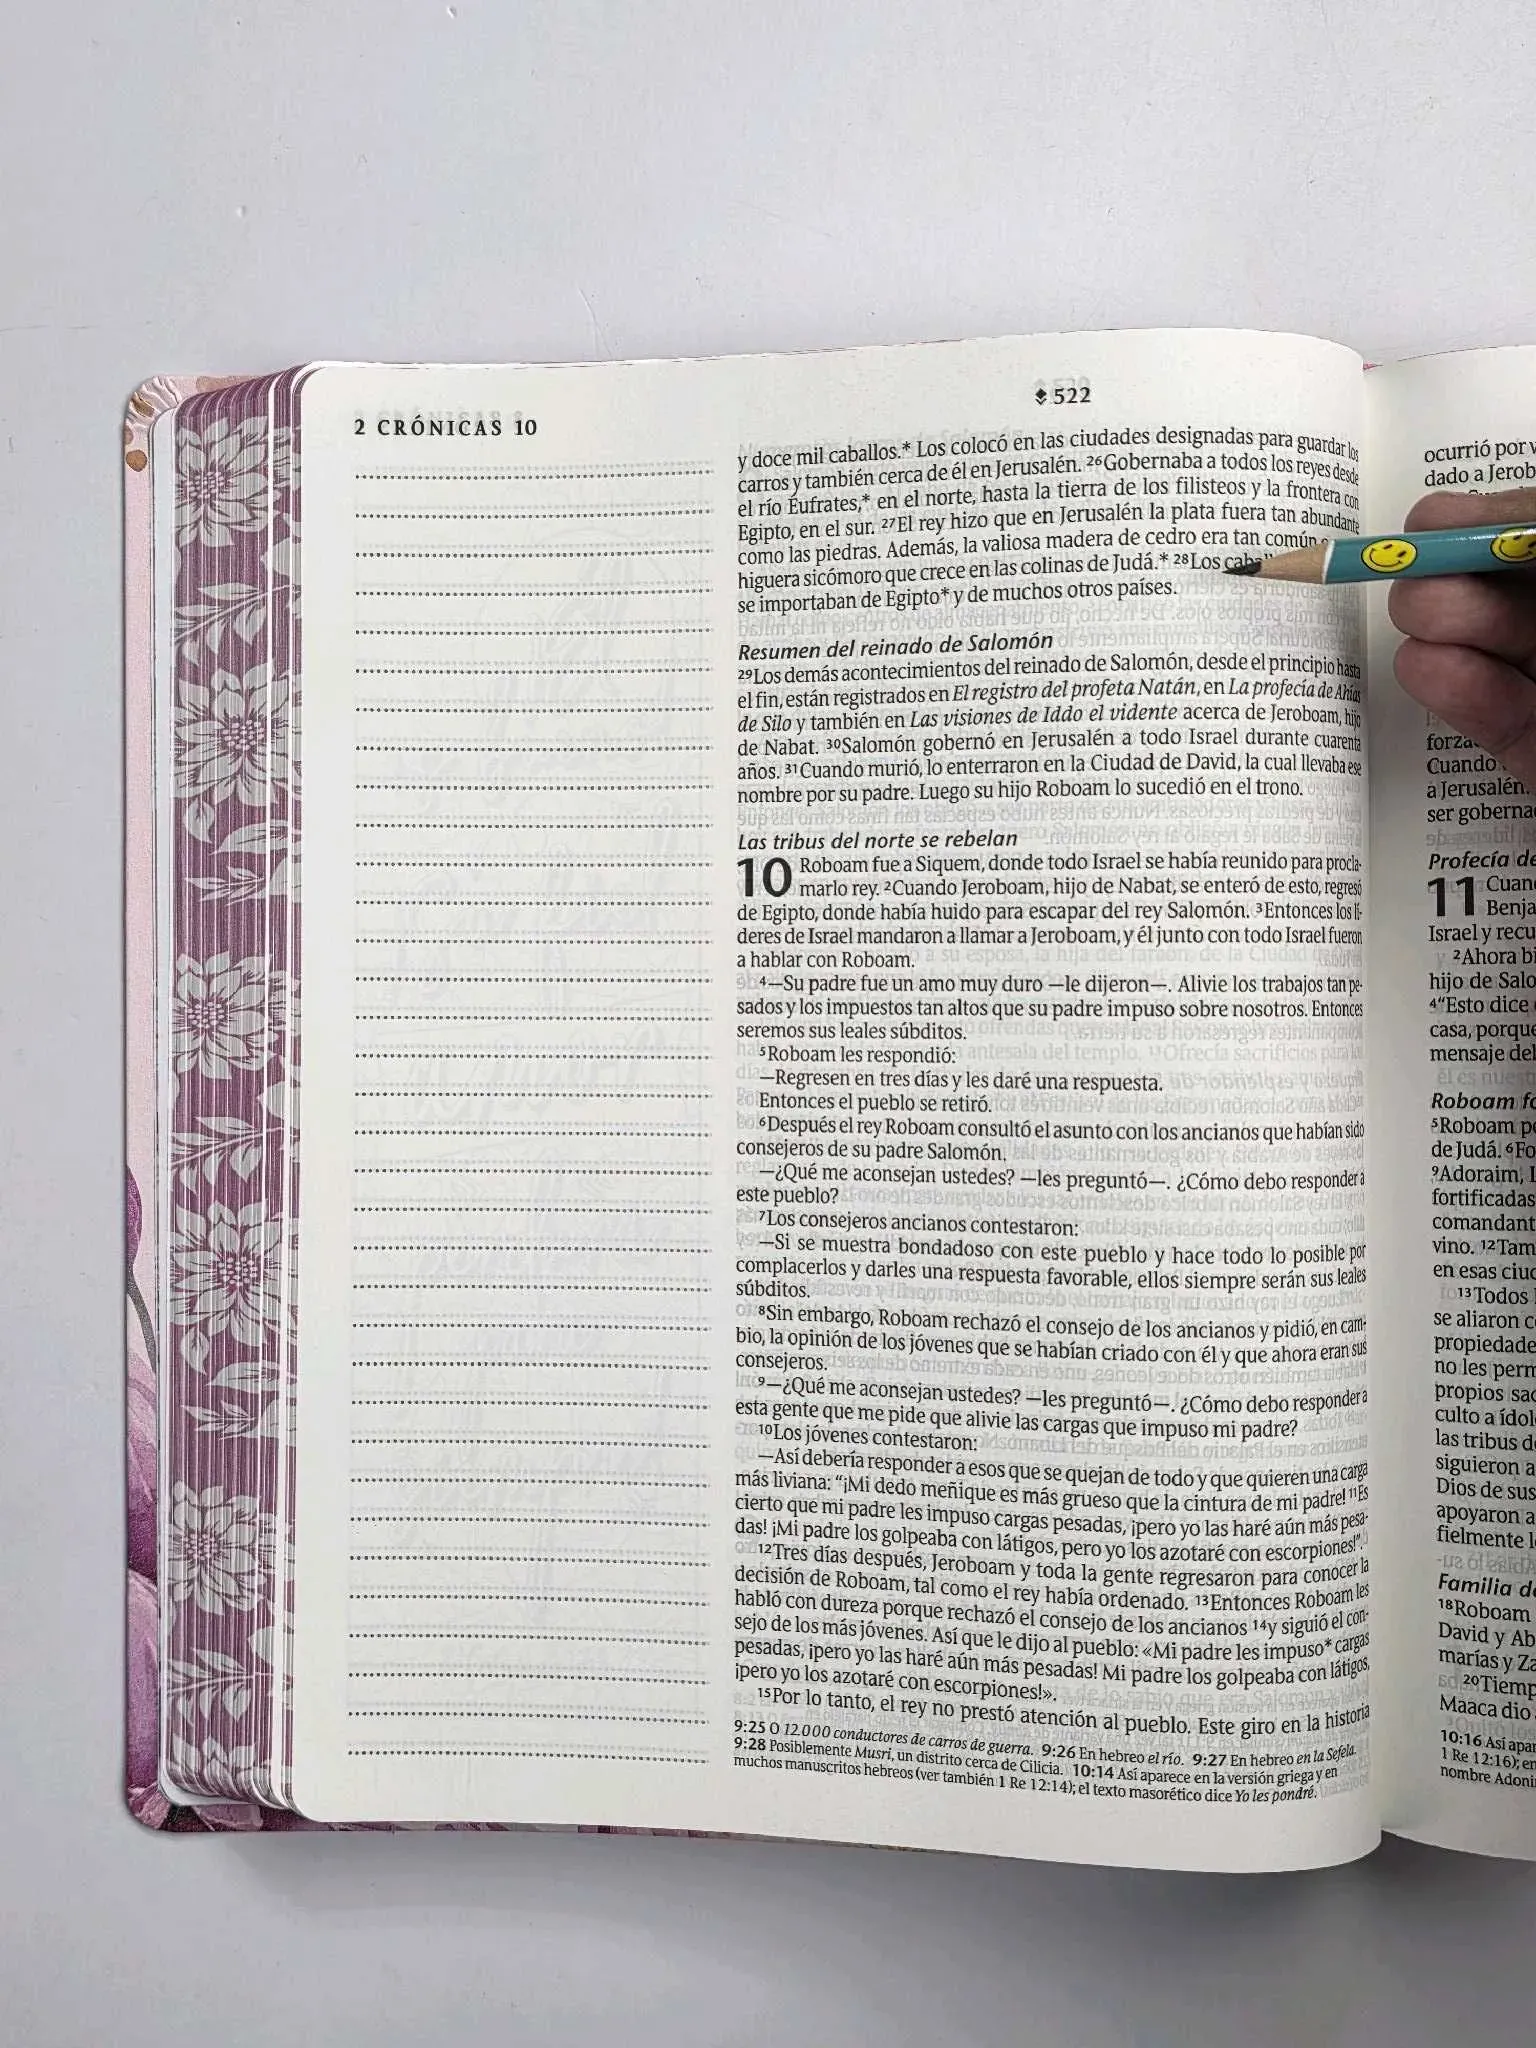 2 CRÓNICAS 10
522
y doce mil caballos.* Los colocó en las ciudades designadas para guardar los
carros y también cerca de él en Jerusalén. 26Gobernaba a todos los reyes desde
el río Éufrates,* en el norte, hasta la tierra de los filisteos y la frontera con
Egipto, en el sur. 27El rey hizo que en Jerusalén la plata fuera tan abundante
como las piedras. Además, la valiosa madera de cedro era tan común
higuera sicómoro que crece en las colinas de Judá.* 28Los
se importaban de Egipto* y de muchos otros países.
Resumen del reinado de Salomón
29Los demás acontecimientos del reinado de Salomón, desde el principio hasta
el fin, están registrados en El registro del profeta Natán, en La profecía de Ahías
de Silo y también en Las visiones de Iddo el vidente acerca de Jeroboam, hijo
de Nabat. 30Salomón gobernó en Jerusalén a todo Israel durante cuarenta
años. 31Cuando murió, lo enterraron en la Ciudad de David, la cual llevaba ese
nombre por su padre. Luego su hijo Roboam lo sucedió en el trono.
Las tribus del norte se rebelan
10 Roboam fue a Siquem, donde todo Israel se había reunido para procla-
marlo rey. 2Cuando Jeroboam, hijo de Nabat, se enteró de esto, regresó
de Egipto, donde había huido para escapar del rey Salomón. 3Entonces los lí-
deres de Israel mandaron a llamar a Jeroboam, y él junto con todo Israel fueron
a hablar con Roboam.
4—Su padre fue un amo muy duro —le dijeron—. Alivie los trabajos tan pe-
sados y los impuestos tan altos que su padre impuso sobre nosotros. Entonces
seremos sus leales súbditos.
5Roboam les respondió:
—Regresen en tres días y les daré una respuesta.
Entonces el pueblo se retiró.
6Después el rey Roboam consultó el asunto con los ancianos que habían sido
consejeros de su padre Salomón.
—¿Qué me aconsejan ustedes? —les preguntó—. ¿Cómo debo responder a
este pueblo?
7Los consejeros ancianos contestaron:
—Si se muestra bondadoso con este pueblo y hace todo lo posible por
complacerlos y darles una respuesta favorable, ellos siempre serán sus leales
súbditos.
8Sin embargo, Roboam rechazó el consejo de los ancianos y pidió, en cam-
bio, la opinión de los jóvenes que se habían criado con él y que ahora eran sus
consejeros.
9—¿Qué me aconsejan ustedes? —les preguntó—. ¿Cómo debo responder a
esta gente que me pide que alivie las cargas que impuso mi padre?
10Los jóvenes contestaron:
—Así debería responder a esos que se quejan de todo y que quieren una carga
más liviana: “¡Mi dedo meñique es más grueso que la cintura de mi padre! 11Es
cierto que mi padre les impuso cargas pesadas, ¡pero yo las haré aún más pesa-
das! ¡Mi padre los golpeaba con látigos, pero yo los azotaré con escorpiones!”.
12Tres días después, Jeroboam y toda la gente regresaron para conocer la
decisión de Roboam, tal como el rey había ordenado. 13Entonces Roboam les
habló con dureza porque rechazó el consejo de los ancianos 14y siguió el con-
sejo de los más jóvenes. Así que le dijo al pueblo: «Mi padre les impuso* cargas
pesadas, ¡pero yo las haré aún más pesadas! Mi padre los golpeaba con látigos,
¡pero yo los azotaré con escorpiones!».
15Por lo tanto, el rey no prestó atención al pueblo. Este giro en la historia
9:25 O 12.000 conductores de carros de guerra. 9:26 En hebreo el río. 9:27 En hebreo en la Sefela.
9:28 Posiblemente Musri, un distrito cerca de Cilicia. 10:14 Así aparece en la versión griega y en
muchos manuscritos hebreos (ver también 1 Re 12:14); el texto masorético dice Yo les pondré.
ocurrió por
dado a Jerob
Cuando
a Jerusalén.
ser goberna
Profecía de
11 Cuan
Benja
Israel y recu
2Ahora bi
hijo de Salo
4“Esto dice
casa, porque
mensaje del
Roboam fo
5Roboam
de Judá. 6Fo
9Adoraim,
fortificadas
comandant
vino. 12Tam
en esas ciud
13Todos
se aliaron c
propiedade
no les perm
propios sac
culto a ídol
las tribus d
siguieron a
Dios de sus
apoyaron a
fielmente l
Familia d
18Roboam
David y Ab
marías y Za
20Tiemp
Maaca dio
10:16 Así apar
1 Re 12:16); en
nombre Adoni